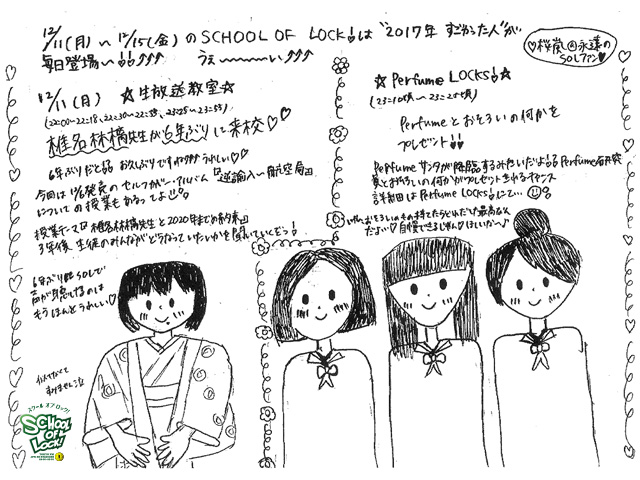 12/11(月)〜12/15(金)のSCHOOL OF LOCK!は"2017年 すごかった人"が
毎日登場〜!!↑↑↑ うぇ〜〜〜〜い↑↑↑
♡桜嵐@永遠の
SOLファン♥
12/11(月) ☆生放送教室☆
(22:00〜22:18、22:30〜22:55、
椎名林檎先生が6年ぶりに来校♡♡
6年ぶりだと
うれしい♡
今回は12/6発売のセルフカバーアルバム『逆輸入〜航空局〜』
についての授業もあるってよ
授業テーマは『椎名林檎先生と2020年まで
3年後、生徒のみんながどうなっていたいかを聞いていくどっ!
6年ぶりにSOLで
声が聴けるのは
もうほんとうれしい♡
似てなくて
すみません泣
☆Perfume LOCKS!☆
(23:10頃〜23:25頃)
Perfumeとおそろいの何かを
プレゼント!!
Perfumeサンタが降臨するみたいだよ
Perfume
員とおそろいの何かがプレゼントされるチャンス
詳細はPerfume LOCKS!にて…
おそろいのもの持てたらそれだけで最高
だよ…♡自慢できるじゃん♡ほしいな〜♪
スクール オブ ロック!
SCHOOL
OF
LOCK!